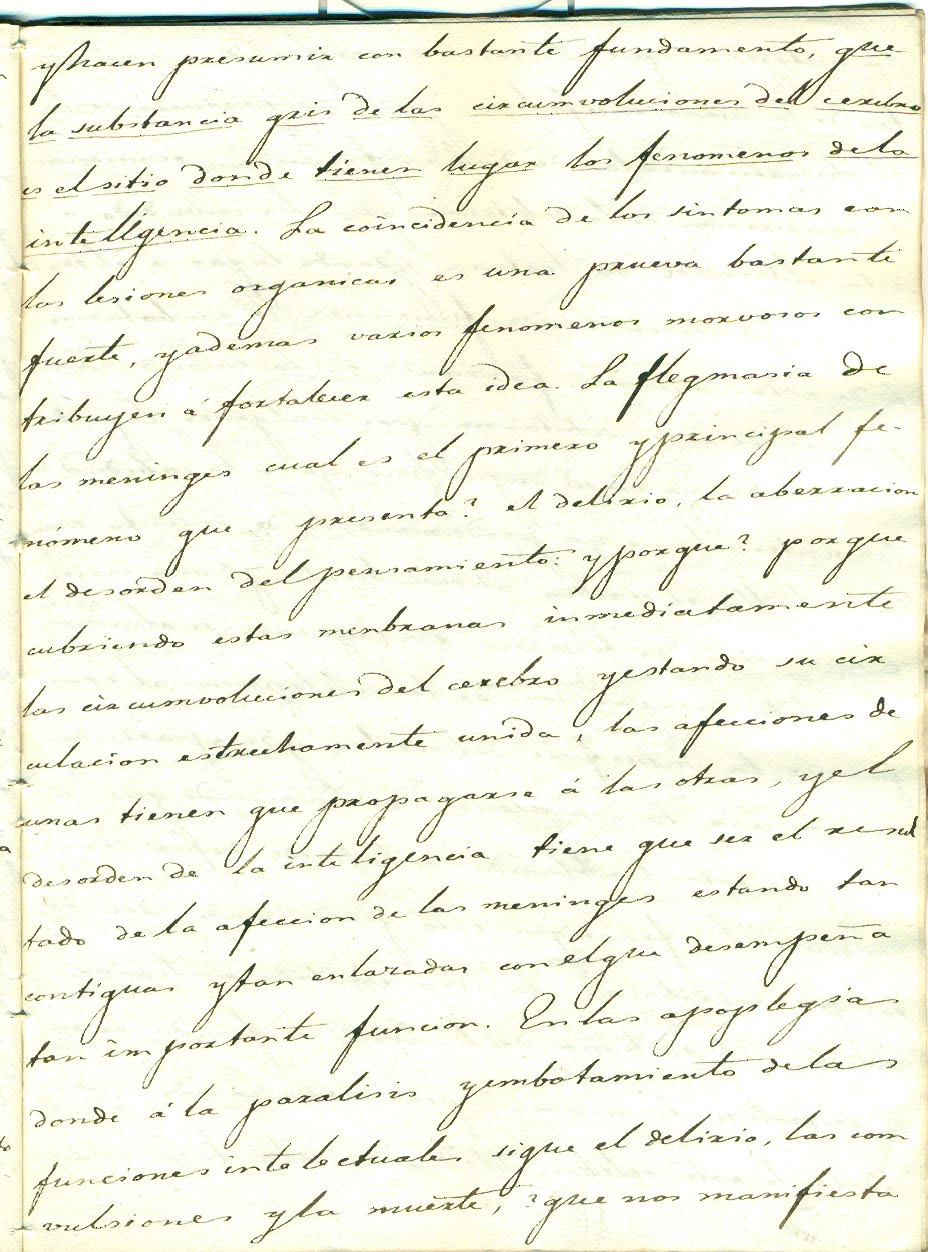 y hacen presumir con bastante fundamento, que
la substancia gris de las circumvoluciones del cerebro
es el sitio donde tienen lugar los fenomenos de la
inteligencia. La coincidencia de los sintomas con
las lesiones organicas es una prueva bastante
fuerte, y ademas varios fenomenos morvosos con
tribuyen á fortalecer esta idea. La flegmasia de
las meninges cual es el primero y principal fe-
nómeno que presenta? el delirio, la aberracion
el desorden del pensamiento: y porque? porque
cubriendo estas menbranas inmediatamente
las circumvoluciones del cerebro y estando su cir
culacion estrechamente unida, las afecciones de
unas tienen que propagarse á las otras, y el
desorden de la inteligencia tiene que ser el resul
tado de la afeccion de las meninges estando tan
contiguas y tan enlazadas con el que desempeña
tan importante funcion. En las apoplegias
donde á la paralisis y embotamiento de las
funciones intelectuales sigue el delirio, las com
vulsiones y la muerte, ? que nos manifiesta